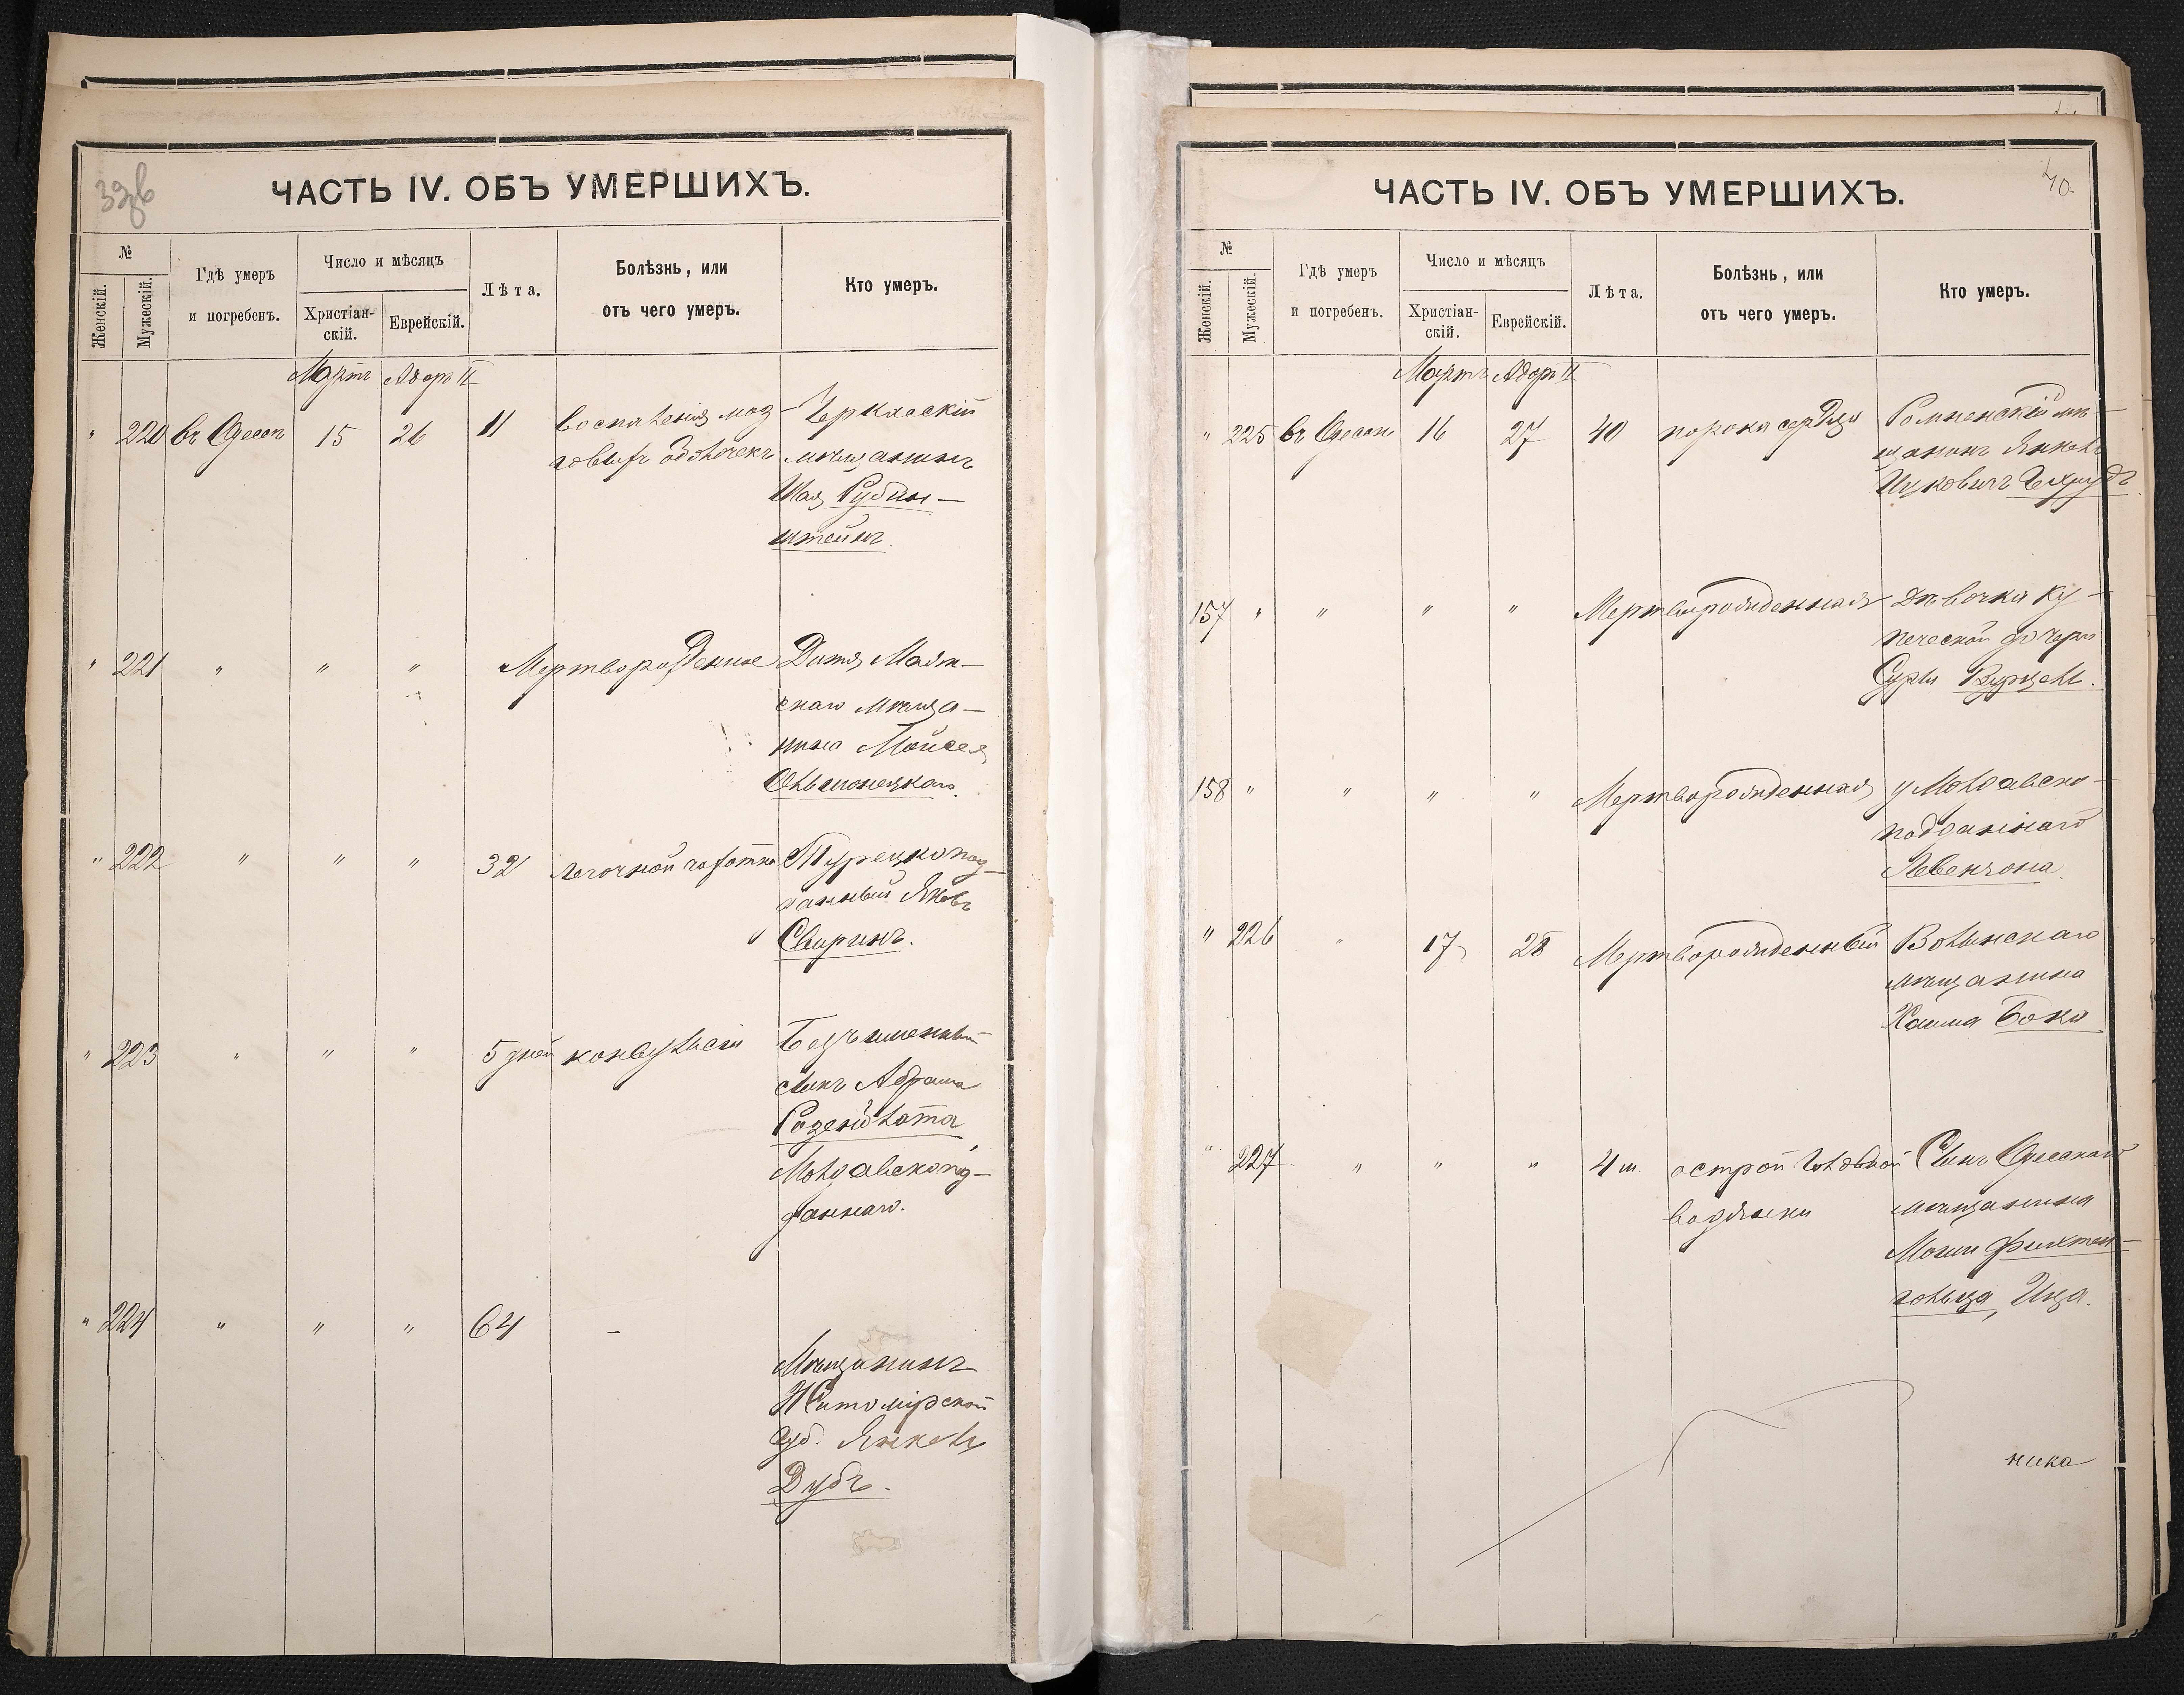 39в
ЧАСТЬ IV. ОБЪ УМЕРШИХЪ.
№
Женскій.
Мужескій.
Гдѣ умеръ
и погребенъ.
Число и мѣсяцъ
Христіан-
скій.
Еврейскій.
Лѣта.
Болѣзнь, или
отъ чего умеръ.
Кто умеръ.
Мартъ Адаръ II
" 220 въ Одессѣ 15 26 11 воспаленія моз Черкасскій
говыхъ оболочекъ мѣщанинъ
Шая Рубин-
штейнъ.
" 221 " " " Мертворожденное Дитя Маяк-
скаго мѣща-
нина Мойсея
" 222 " " " 32 легочной чахотки Турецкопод-
данный Яковъ
Свиринъ.
" 223 " " " 5 дней конвульсіи Безъименный
сынъ Абрама
Розенблата
Молдавскопод-
даннаго.
" 224 " " " 64 -
Мѣщанинъ
Житомірской
губ. Янкель
Дубъ.
40.
ЧАСТЬ IV. ОБЪ УМЕРШИХЪ.
№
Женскій.
Мужескій.
Гдѣ умеръ
и погребенъ.
Число и мѣсяцъ
Христіан-
скій.
Еврейскій.
Лѣта.
Болѣзнь, или
отъ чего умеръ.
Кто умеръ.
Мартъ Адаръ II
" 225 въ Одессѣ 16 27 40 порока сердца Роменскій мѣ-
щанинъ Янкель
Ицковичъ
157 " " " " Мертворожденная дѣвочка Ку-
печеской дочери
Суры Вурцель.
158 " " " " Мертворожденная у Молдавско-
подданнаго
Левензона.
" 226 " 17 28 Мертворожденный Волынскаго
мѣщанина
Хаима Бока
" 227 " " " 4 м. острой головной Сынъ Одесскаго
водянки мѣщанина
Мошки Фихтен-
гольца, Ица.
ника